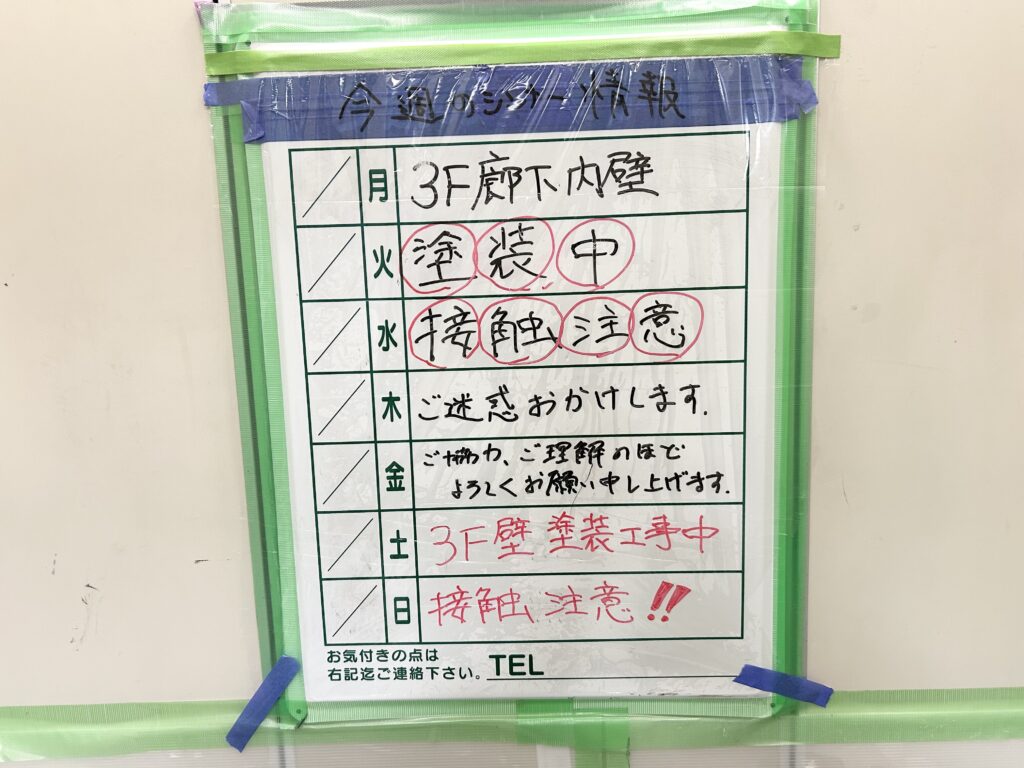 今週のシンナー情報
／ 月 3F廊下内壁
／ 火 塗装中
／ 水 接触注意
／ 木 ご迷惑おかけします.
／ 金 ご協力、ご理解のほど
よろしくお願い申し上げます.
／ 土 3F壁塗装工事中
／ 日 接触注意!!
お気付きの点は
右記迄ご連絡下さい。TEL